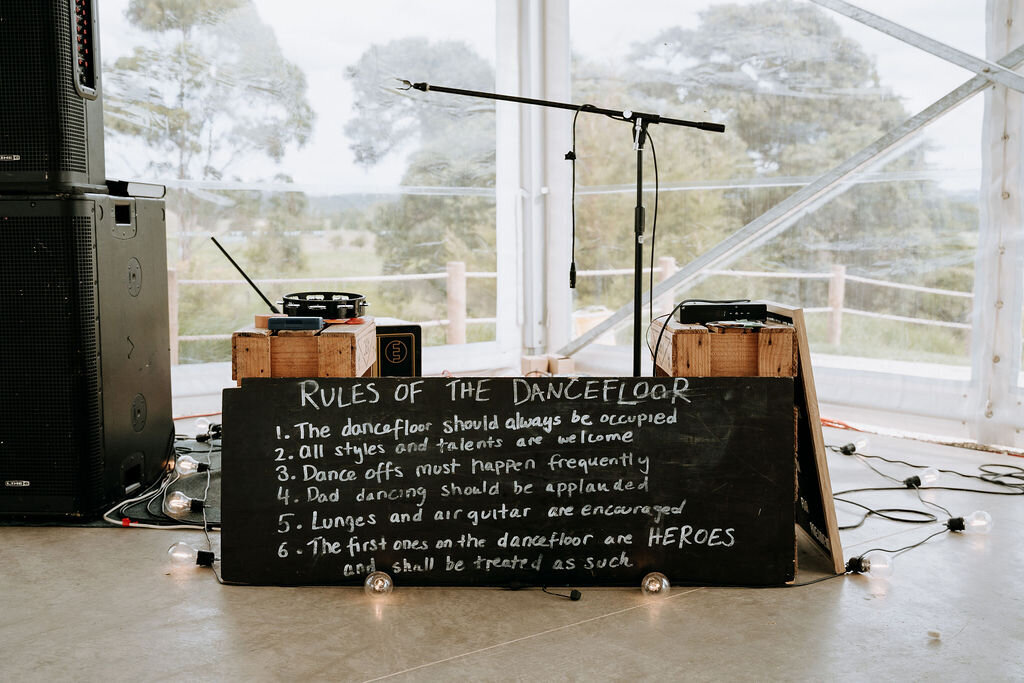 RULES OF THE DANCEFLOOR
1. The dancefloor should always be occupied
2. all styles and talents are welcome
3. Dance offs must happen frequently
4. Dad dancing should be applauded
5. Lunges and air guitar are encouraged
6. The first ones on the dancefloor are HEROES
and shall be treated as such
LINE 6
LINE 6